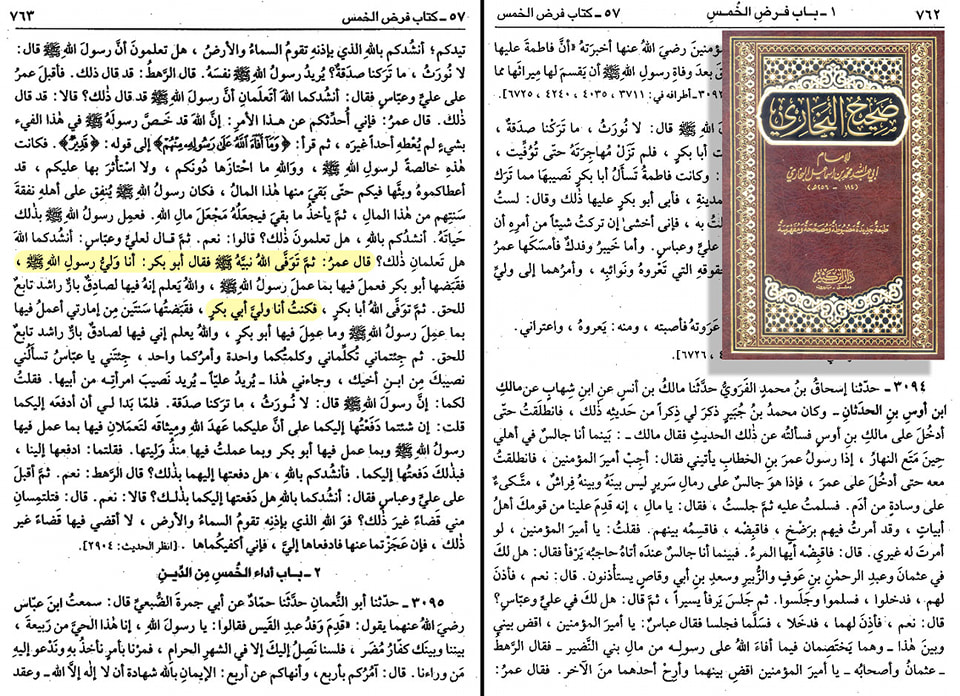 ٧٦٢ ١ - باب فرض الخُمسِ ٥٧ - كتاب فرض الخمس
ؤمنينَ رضيَ اللهُ عنها أخبرَتهُ «أنَّ فاطمةَ عليها
بعدَ وفاةِ رسولِ اللهِ ﷺ أن يَقسمَ لها مِيراثَها مما
أطرافه في: ٣٧١١ ، ٤٠٣٥ ، ٤٢٤٠ ، ٦٧٢٥].
اللهِ ﷺ قال: لا نُورَثُ ، ما تَرَكْنا صدَقة ،
أبا بكرٍ ، فلم تَزَلْ مُهاجِرَتَهُ حتى تُوُفِّيَت ،
: وكانت فاطمةُ تَسألُ أبا بكرٍ نَصيبَها مما تَرَكَ
مدينةِ ، فأبى أبو بكرٍ عليها ذلك وقال: لستُ
ـتُ به ، فإني أخشىٰ إن تركتُ شيئاً من أمرِهِ أن
علي وعباسٍ. وأما خَيبرُ وفَدكُ فأمسَكَها عمرُ
حقوقهِ التي تَعْروهُ ونَوائبِه ، وأمرُهما إلى وليِّ
عَرَوتهُ فأصبته ، ومنه: يَعروهُ ، واعتراني.
، ٦٧٢٦].
صحيح البخاري
للإمام
أبي عبدالله محمد بن إسماعيل البخاري
(١٩٤ - ٢٥٦هـ)
طبعة جديدة مضبوطة ومصححة ومفهرسة
دار ابن كثير
دمشق - بيروت
٣٠٩٤ - حدّثنا إسحاقُ بنُ محمدٍ الفَرَويُّ حدَّثَنا مالكُ بن أنسٍ عنِ ابنِ شِهابٍ عن مالكِ
ابنِ أوسِ بنِ الحدَثانِ - وكان محمدُ بنُ جُبَيرٍ ذكرَ لي ذِكراً من حَديثهِ ذلك ، فانطلَقتُ حتّى
أدخُلَ على مالكِ بنِ أوسٍ فسألتُه عن ذلك الحديثِ فقال مالك - : بَينما أنا جالسٌ في أهلي
حِينَ مَتَعَ النهارُ ، إذا رسولُ عمرَ بنِ الخطابِ يأتيني فقال: أجِبْ أميرَ المؤمنين ، فانطلَقتُ
معه حتى أدخُلَ على عمرَ ، فإذا هوَ جالسٌ على رِمالِ سَريرٍ ليس بينَهُ وبينَهُ فِراشٌ ، متَّكىءٌ
على وِسادةٍ من أدَم. فسلمتُ عليه ثمَّ جلستُ ، فقال: يا مالِ ، إنه قدِمَ علينا من قومكَ أهلُ
أبياتٍ ، وقد أمرتُ فيهم برَضْخٍ ، فاقبِضْه ، فاقسِمهُ بينهم. فقلتُ: يا أميرَ المؤمنين ، لو
أمرتَ له غيري. قال: فاقبِضْه أيها المرءُ. فبينما أنا جالسٌ عندَه أتاهُ حاجبُه يَرْفأ فقال: هل لكَ
في عثمانَ وعبدِ الرحمٰنِ بنِ عَوفٍ والزُّبيرِ وسعدِ بنِ أبي وقاصٍ يستأذنون. قال: نعم ، فأذنَ
لهم ، فدخلوا ، فسلموا وجَلسوا. ثم جَلسَ يَرفأ يسيراً ، ثمَّ قال: هل لكَ في عليٍّ وعباسٍ؟
قال: نعم ، فأذِنَ لهما ، فدَخَلا ، فسَلَّما فجلسا فقال عباسٌ: يا أميرَ المؤمنين ، اقضِ بيني
وبينَ هٰذا - وهما يَختصمانِ فيما أفاءَ اللهُ على رسولِـه من مالِ بني النَّضير - فقال الرهطُ
عثمانُ وأصحابُه - يا أميرَ المؤمنين اقضِ بينهما وأرِحْ أحدَهما منَ الآخر. فقال عمرُ:
٥٧ - كتاب فرض الخمس ٧٦٣
تيدكم؛ أنشُدكم باللهِ الذي بإذنهِ تقومُ السماءُ والأرضُ ، هل تعلمونَ أنَّ رسولَ اللهِ ﷺ قال:
لا نُورَثُ ، ما تَرَكنا صدَقةٌ؟ يُريدُ رسولُ اللهِ ﷺ نفسَهُ. قال الرَّهطُ: قد قال ذلك. فأقبلَ عمرُ
على عليٍّ وعبّاسٍ فقال: أنشُدكما اللهَ أتَعلَمانِ أنَّ رسولَ اللهِ ﷺ قد قال ذٰلك؟ قالا: قد قال
ذلك. قال عمرُ: فإني أُحدِّثكم عن هـذا الأمرِ: إنَّ اللهَ قد خَـصَّ رسولَهُ ﷺ في هذا الفيء
بشيءٍ لم يُعْطِهِ أحداً غيرَه ، ثم قرأ: ﴿وَمَآ أَفَآءَ اللَّهُ عَلَىٰ رَسُولِهِۦ مِنْهُمْ﴾ إلى قوله: ﴿قَدِيرٌ﴾. فكانت
هذهِ خالصةً لرسولِ اللهِ ﷺ ، وواللهِ ما احتازَها دُونَكم ، ولا استأثَرَ بها عليكم ، قد
أعطاكموهُ وبثَّها فيكم حتّى بَقيَ منها هٰذا المالُ ، فكان رسولُ اللهِ ﷺ يُنفِقُ على أهلهِ نفقةَ
سَنَتِهم من هٰذا المالِ ، ثمَّ يأخُذُ ما بقيَ فيجعلُهُ مَجْعَلَ مالِ اللهِ. فعمِلَ رسولُ اللهِ ﷺ بذلك
حَياتَهُ. أنشدُكم باللهِ ، هل تعلمونَ ذلك؟ قالوا: نعم. ثمَّ قال لعليٍّ وعبّاسٍ: أنشُدُكما اللهَ
هل تَعلمانِ ذلك؟ قال عمرُ: ثمَّ تَوَفَّى اللهُ نبيَّهُ ﷺ فقال أبو بكر: أنا وَليُّ رسولِ اللهِ ﷺ ،
فقبَضها أبو بكرٍ فعملَ فيها بما عمِلَ رسولُ اللهِ ﷺ ، واللهُ يعلمُ إنه فيها لصادِقٌ بارٌّ راشد تابعٌ
للحق. ثمَّ تَوفَّى اللهُ أبا بكرٍ ، فكنتُ أنا وليَّ أبي بكرٍ ، فقَبَضتُها سَنَتَينِ من إمارتي أعملُ فيها
بما عملَ رسولُ اللهِ ﷺ وما عملَ فيها أبو بكرٍ ، واللهُ يعلم إني فيها لصادِقٌ بارٌّ راشدٌ تابعٌ
للحق. ثم جِئتماني تُكلِّماني وكلمتُكما واحدة وأمرُكما واحد ، جِئتَني يا عبّاسُ تسألُني
نصيبَكَ مِن ابـنِ أخيك ، وجاءني هٰذا - يُريدُ عليّاً - يُريد نَصيبَ امرأتِـه من أبيها. فقلتُ
لكما: إنَّ رسولَ اللهِ ﷺ قال: لا نُـورَثُ ، ما تركنا صدَقة. فلمّا بَدا لـي أن أدفعَه إليكما
قلت: إن شئتما دَفَعْتُها إليكما على أنَّ عليكما عَهدَ اللهِ ومِيثاقَه لتَعمَلانِ فيها بما عمل فيها
رسولُ اللهِ ﷺ وبما عملَ فيها أبو بكر وبما عملتُ فيها مُنذُ وَلِيتُها. فقلتما: ادفعها إلينا ،
فبذلكَ دَفَعتُها إليكما. فأنشُدكم باللهِ ، هل دفعتها إليهما بذلك؟ قال الرَّهط: نعم. ثمَّ أقبلَ
على عليٍّ وعباسٍ فقال: أنشُدكما باللهِ هل دَفعتها إليكما بذٰلـك؟ قالا: نعم. قال: فتلتمِسانِ
مني قضاءً غيرَ ذلك؟ فوَ اللهِ الذي بإذنِهِ تقومُ السماءُ والأرض ، لا أقضي فيها قضاءً غير
ذلك ، فإن عَجَزْتما عنها فادفعاها إليَّ ، فإني أكفيكُماها. [انظر الحديث: ٢٩٠٤].
٢ - بـاب أداءُ الخُمسِ مِنَ الدِّينِ
٣٠٩٥ - حدّثنا أبو النُّعمانِ حدَّثَنا حمّادٌ عن أبي جمرةَ الضُّبَعيِّ قال: سمعتُ ابنَ عبّاس
رضيَ اللهُ عنهما يقول: «قَدِمَ وَفدُ عبدِ القَيس فقالوا: يا رسولَ اللهِ ، إنا هٰذا الحيَّ من رَبيعةَ ،
بيننا وبينَكَ كفّارُ مُضَر ، فلسنا نَصِلُ إليكَ إلا في الشهرِ الحرامِ ، فمرْنا بأمرٍ نأخُذُ بِهِ ونَدْعو إليهِ
مَن وراءنا. قال: آمرُكم بأربعٍ ، وأنهاكم عن أربَع: الإيمانِ باللهِ شهادةِ أن لا إلٰه إلاَّ الله - وعقد